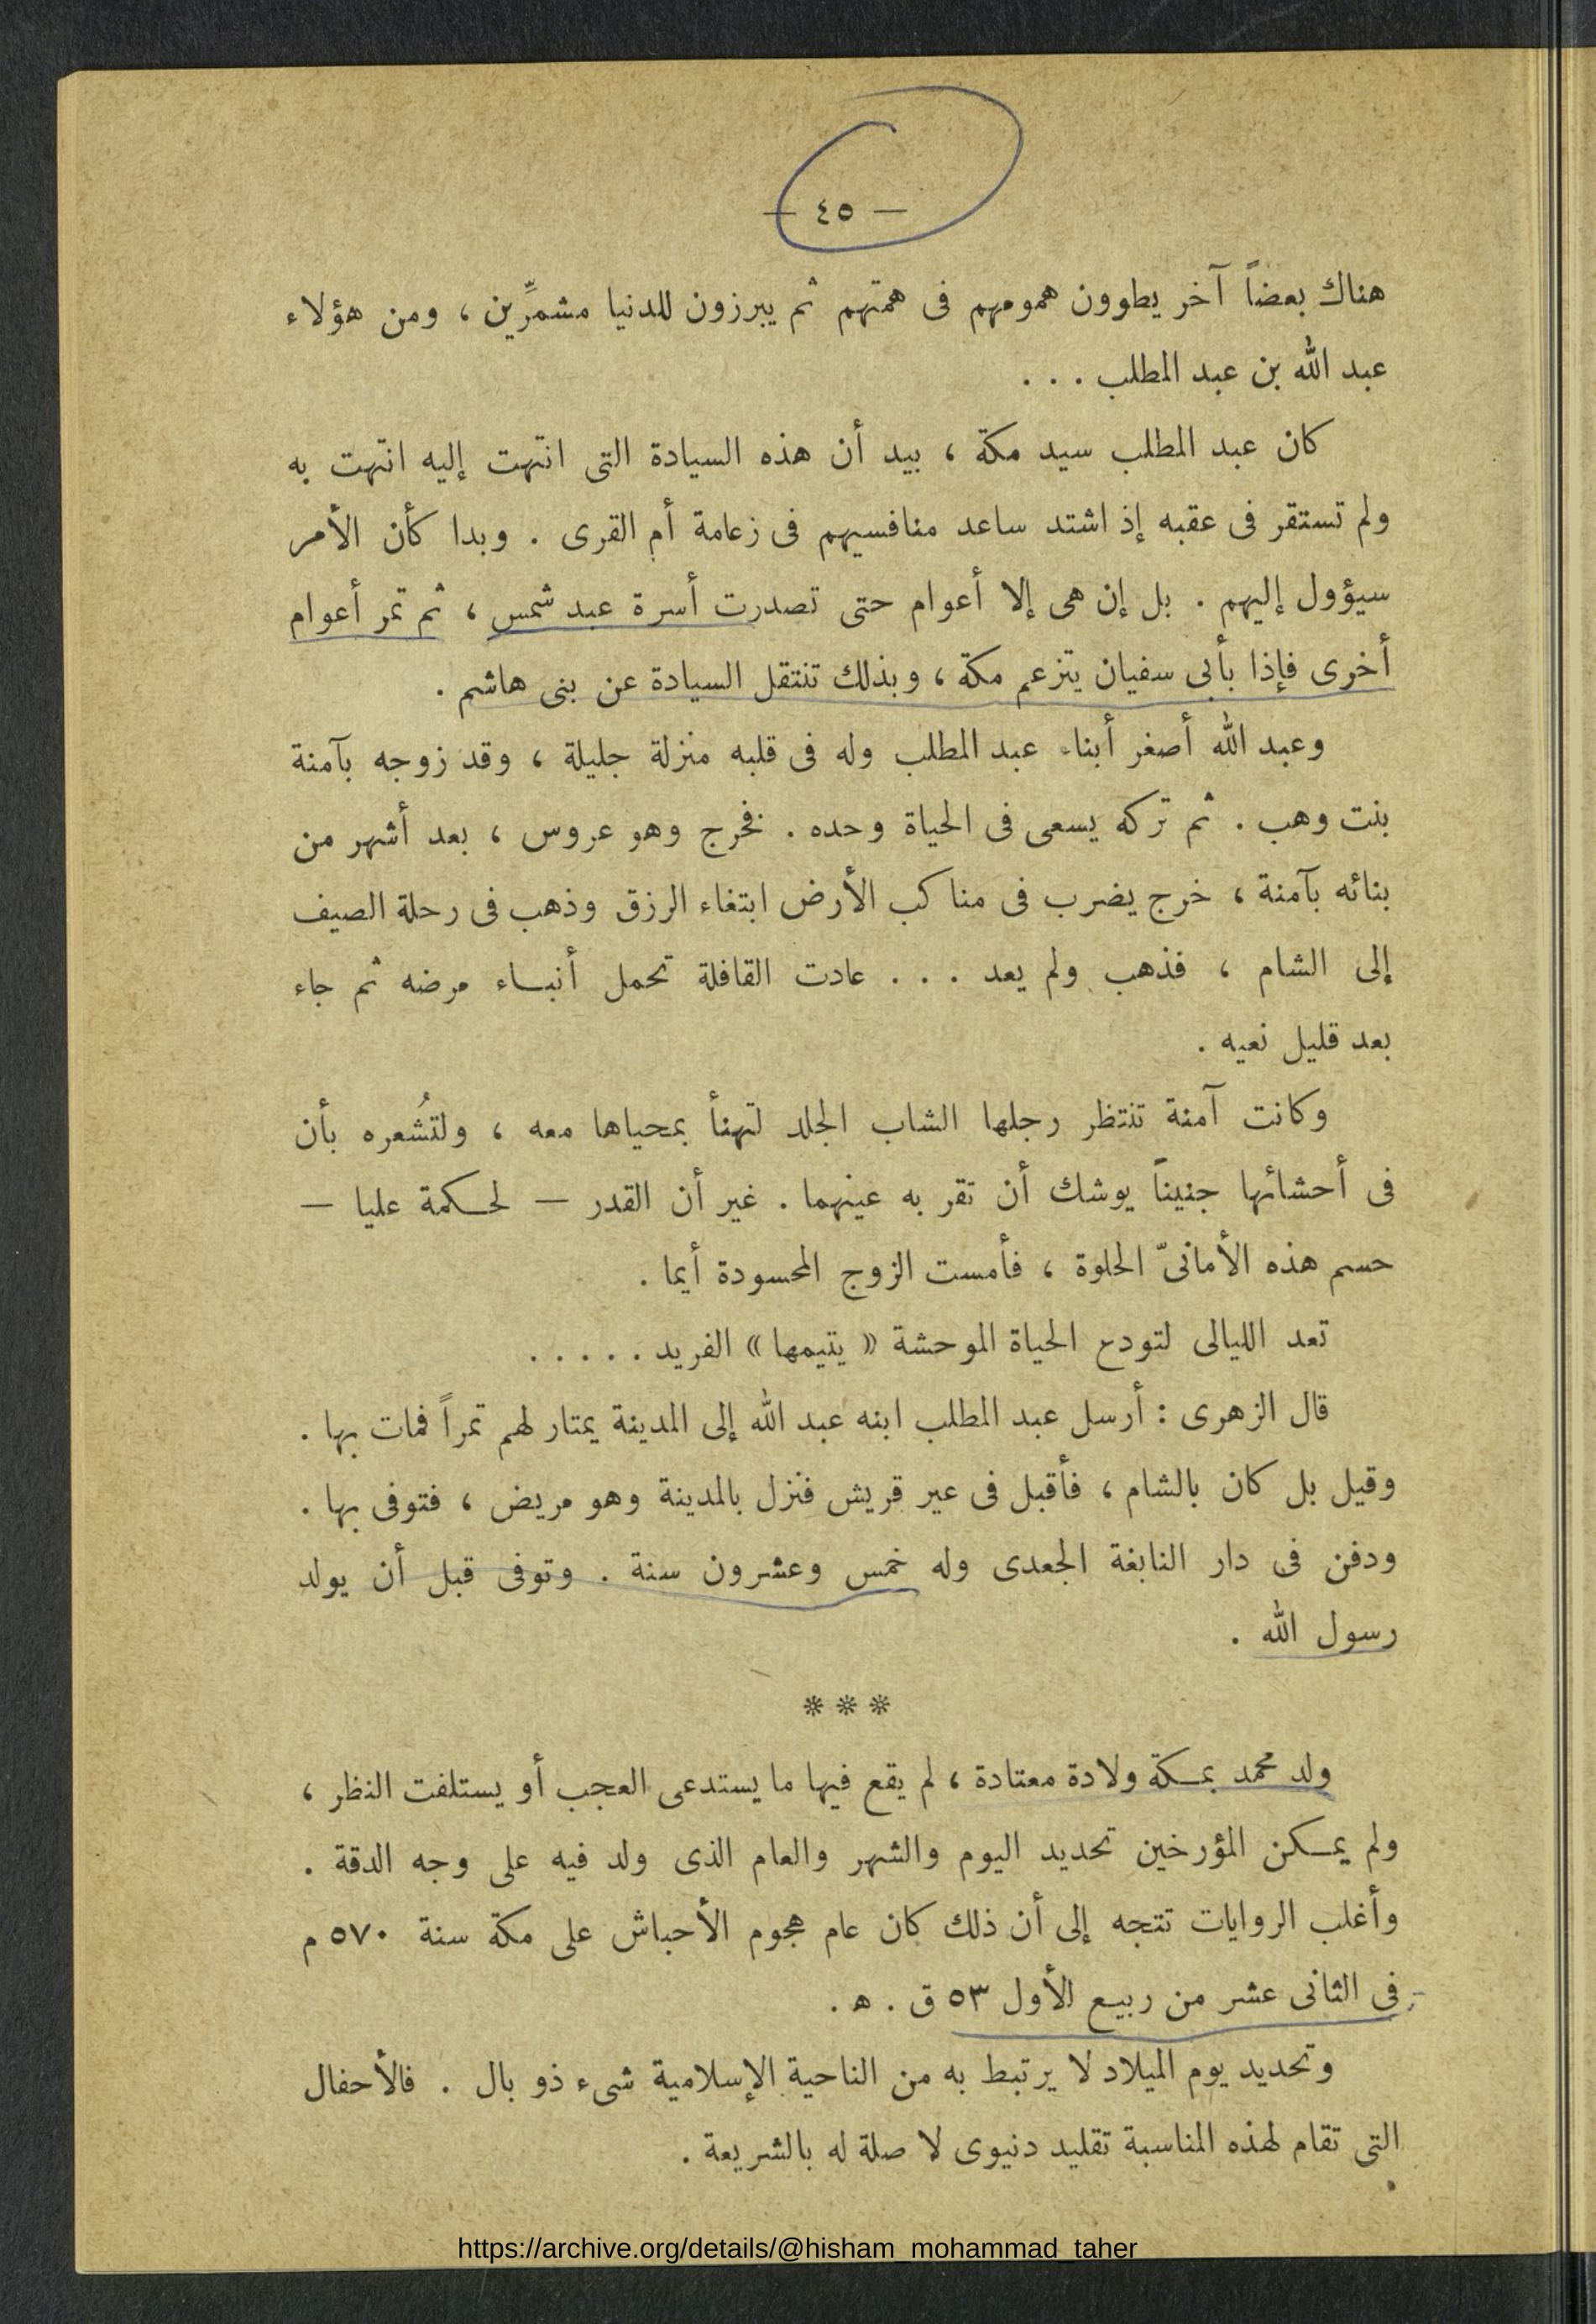 — ٤٥ —
هناك بعضاً آخر يطوون همومهم فى همتهم ثم يبرزون للدنيا مشمرِّين ، ومن هؤلاء
عبد الله بن عبد المطلب . . .
كان عبد المطلب سيد مكة ، بيد أن هذه السيادة التى انتهت إليه انتهت به
ولم تستقر فى عقبه إذ اشتد ساعد منافسيهم فى زعامة أم القرى . وبدا كأن الأمر
سيؤول إليهم . بل إن هى إلا أعوام حتى تصدرت أسرة عبد شمس ، ثم تمر أعوام
أخرى فإذا بأبى سفيان يتزعم مكة ، وبذلك تنتقل السيادة عن بنى هاشم .
وعبد الله أصغر أبناء عبد المطلب وله فى قلبه منزلة جليلة ، وقد زوجه بآمنة
بنت وهب . ثم تركه يسعى فى الحياة وحده . فخرج وهو عروس ، بعد أشهر من
بنائه بآمنة ، خرج يضرب فى مناكب الأرض ابتغاء الرزق وذهب فى رحلة الصيف
إلى الشام ، فذهب ولم يعد . . . عادت القافلة تحمل أنباء مرضه ثم جاء
بعد قليل نعيه .
وكانت آمنة تنتظر رجلها الشاب الجلد لتهنأ بمحياها معه ، ولتُشعره بأن
فى أحشائها جنيناً يوشك أن تقر به عينهما . غير أن القدر — لحكمة عليا —
حسم هذه الأمانىّ الحلوة ، فأمست الزوج المحسودة أيما .
تعد الليالى لتودع الحياة الموحشة « يتيمها » الفريد . . . . .
قال الزهرى : أرسل عبد المطلب ابنه عبد الله إلى المدينة يمتار لهم تمراً فمات بها .
وقيل بل كان بالشام ، فأقبل فى عير قريش فنزل بالمدينة وهو مريض ، فتوفى بها .
ودفن فى دار النابغة الجعدى وله خمس وعشرون سنة . وتوفى قبل أن يولد
رسول الله .
* * *
ولد محمد بمكة ولادة معتادة ، لم يقع فيها ما يستدعى العجب أو يستلفت النظر ،
ولم يمكن المؤرخين تحديد اليوم والشهر والعام الذى ولد فيه على وجه الدقة .
وأغلب الروايات تتجه إلى أن ذلك كان عام هجوم الأحباش على مكة سنة ٥٧٠ م
فى الثانى عشر من ربيع الأول ٥٣ ق . ھ .
وتحديد يوم الميلاد لا يرتبط به من الناحية الإسلامية شىء ذو بال . فالأحفال
التى تقام لهذه المناسبة تقليد دنيوى لا صلة له بالشريعة .
https://archive.org/details/@hisham_mohammad_taher